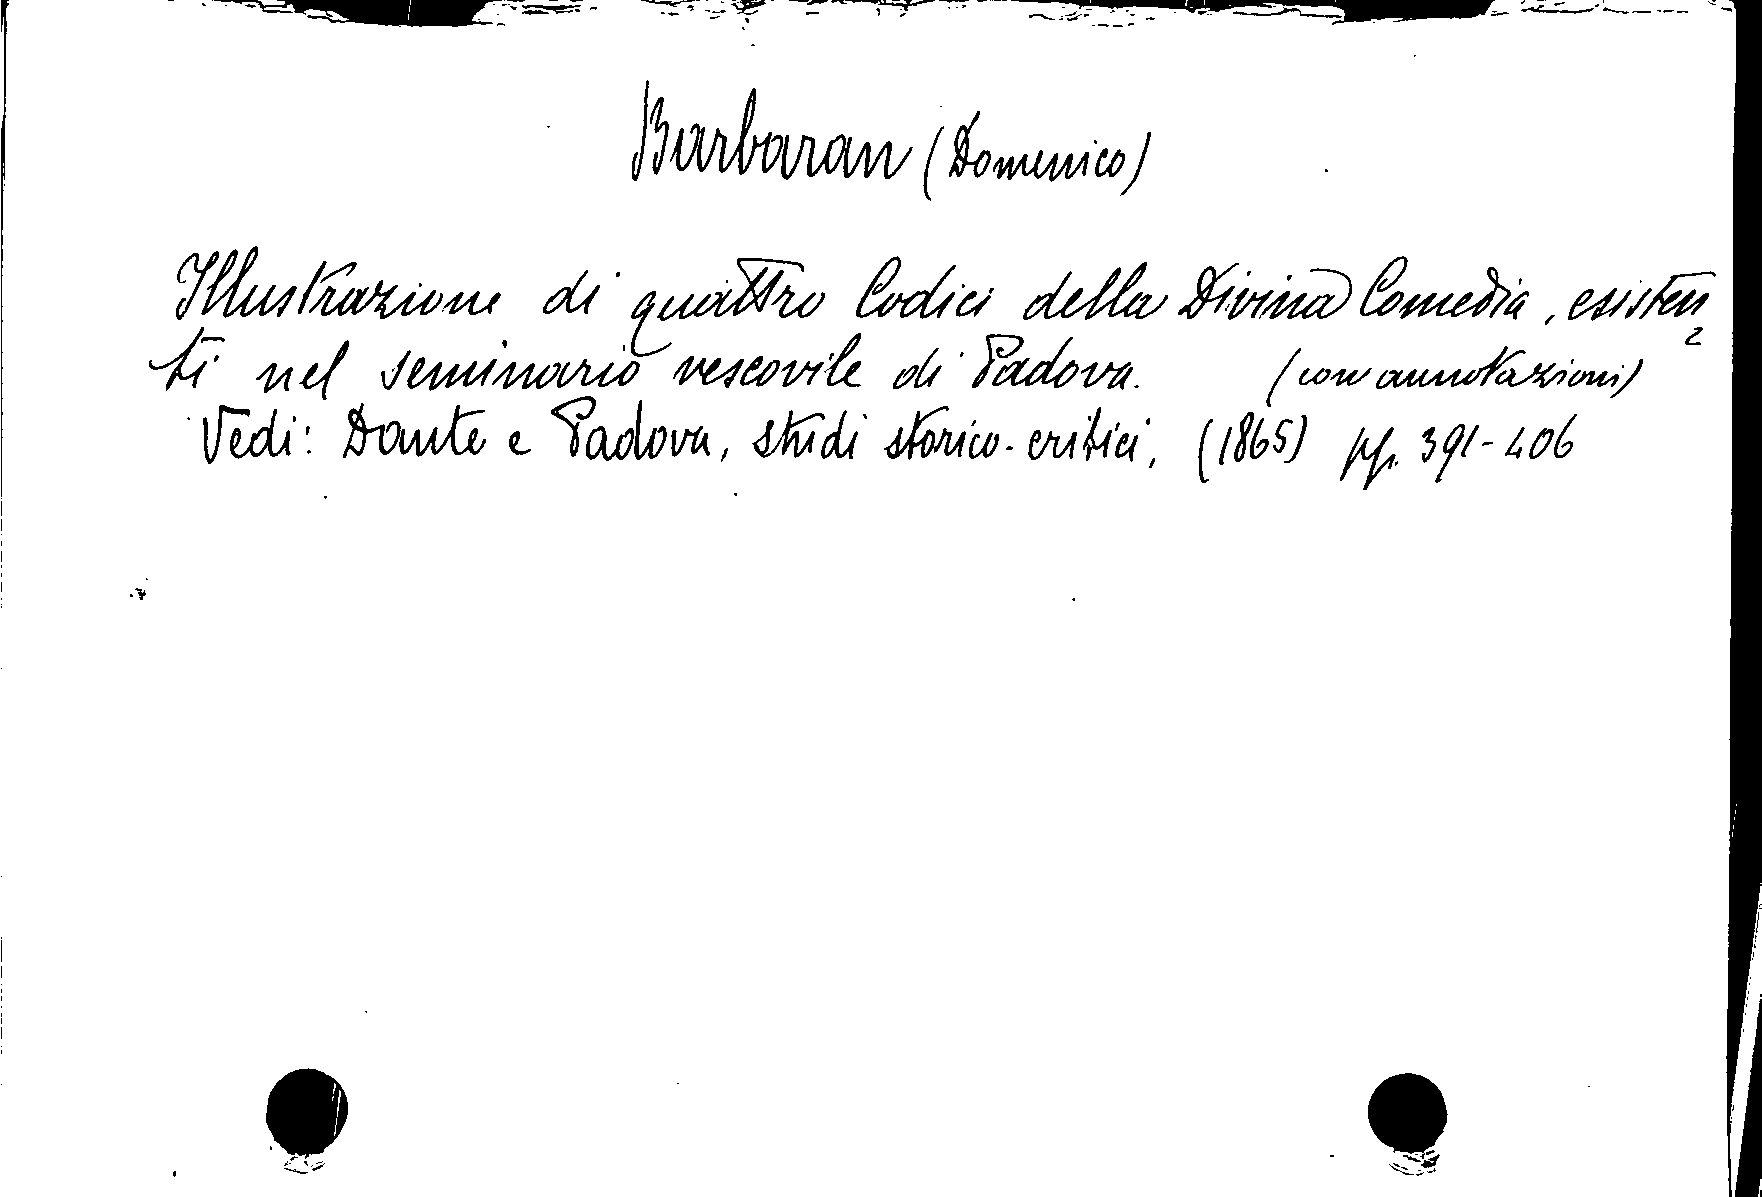 Barbaran (Domenico)
Illustrazione di quattro Codici della Divina Comedia, esisten
ti nel seminario vescovile di Padova. (con annotazioni)
Vedi: Dante e Padova, studi storico-critici, (1865) pp. 391-406